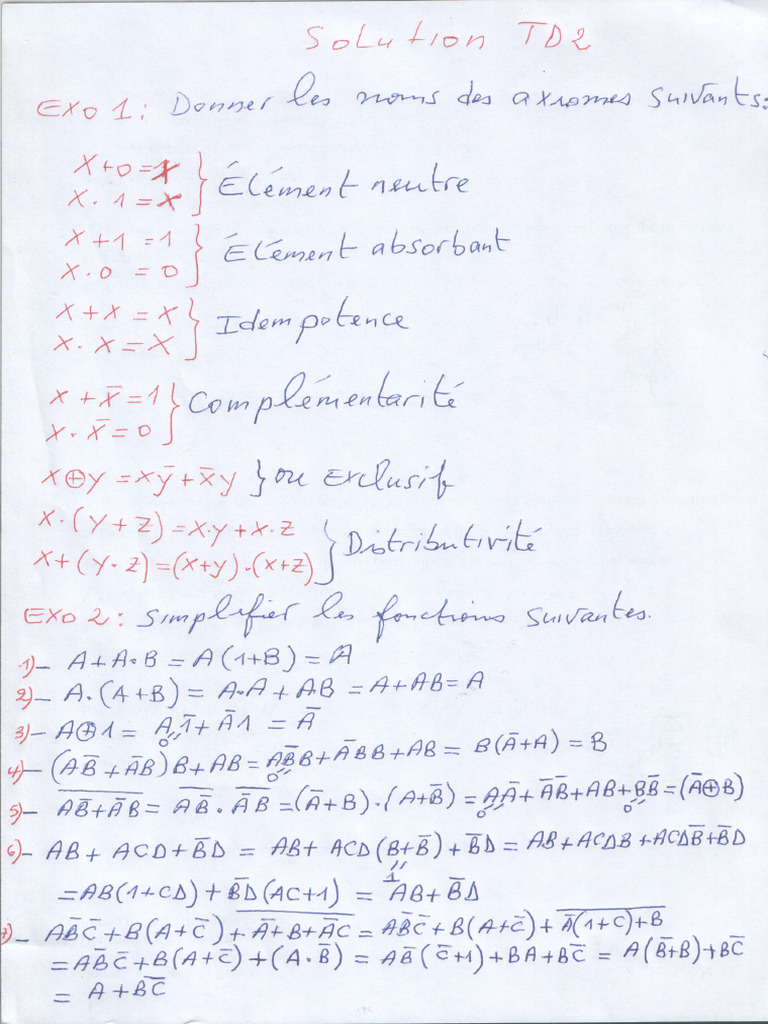 Solution TD2
EXO 1 : Donner les noms des axiomes suivants :
X+0=X } Élément neutre
X.1=X
X+1=1 } Élément absorbant
X.0=0
X+X=X } Idempotence
X.X=X
X+X̅=1 } Complémentarité
X.X̅=0
X⊕y = xy̅+x̅y } ou Exclusif
X.(Y+Z)=X.Y+X.Z } Distributivité
X+(Y.Z)=(X+Y).(X+Z)
EXO 2 : Simplifier les fonctions suivantes.
1)- A+A.B = A(1+B) = A
2)- A.(A+B) = A.A + AB = A+AB= A
3)- A⊕1 = A.1̅ + A̅1 = A̅
0
4)- (AB̅+A̅B)B+AB = AB̅B+A̅BB+AB = B(A̅+A) = B
0
5)- \overline{AB̅+A̅B} = \overline{AB̅} . \overline{A̅B} = (A̅+B).(A+B̅) = AA̅+A̅B̅+AB+BB̅ = (A̅⊕B)
0 0
6)- AB + ACD+B̅D = AB+ ACD(B+B̅)+B̅D = AB+ACDB+ACDB̅+B̅D
1
=AB(1+CD)+B̅D(AC+1) = AB+B̅D
7)- AB̅C̅+B(A+C̅)+\overline{A̅+B+A̅C} = AB̅C̅+B(A+C̅)+\overline{A̅(1+C)+B}
=AB̅C̅+B(A+C̅)+(A.B̅) = AB̅(C̅+1)+BA+BC̅ = A(B̅+B)+BC̅
= A+BC̅